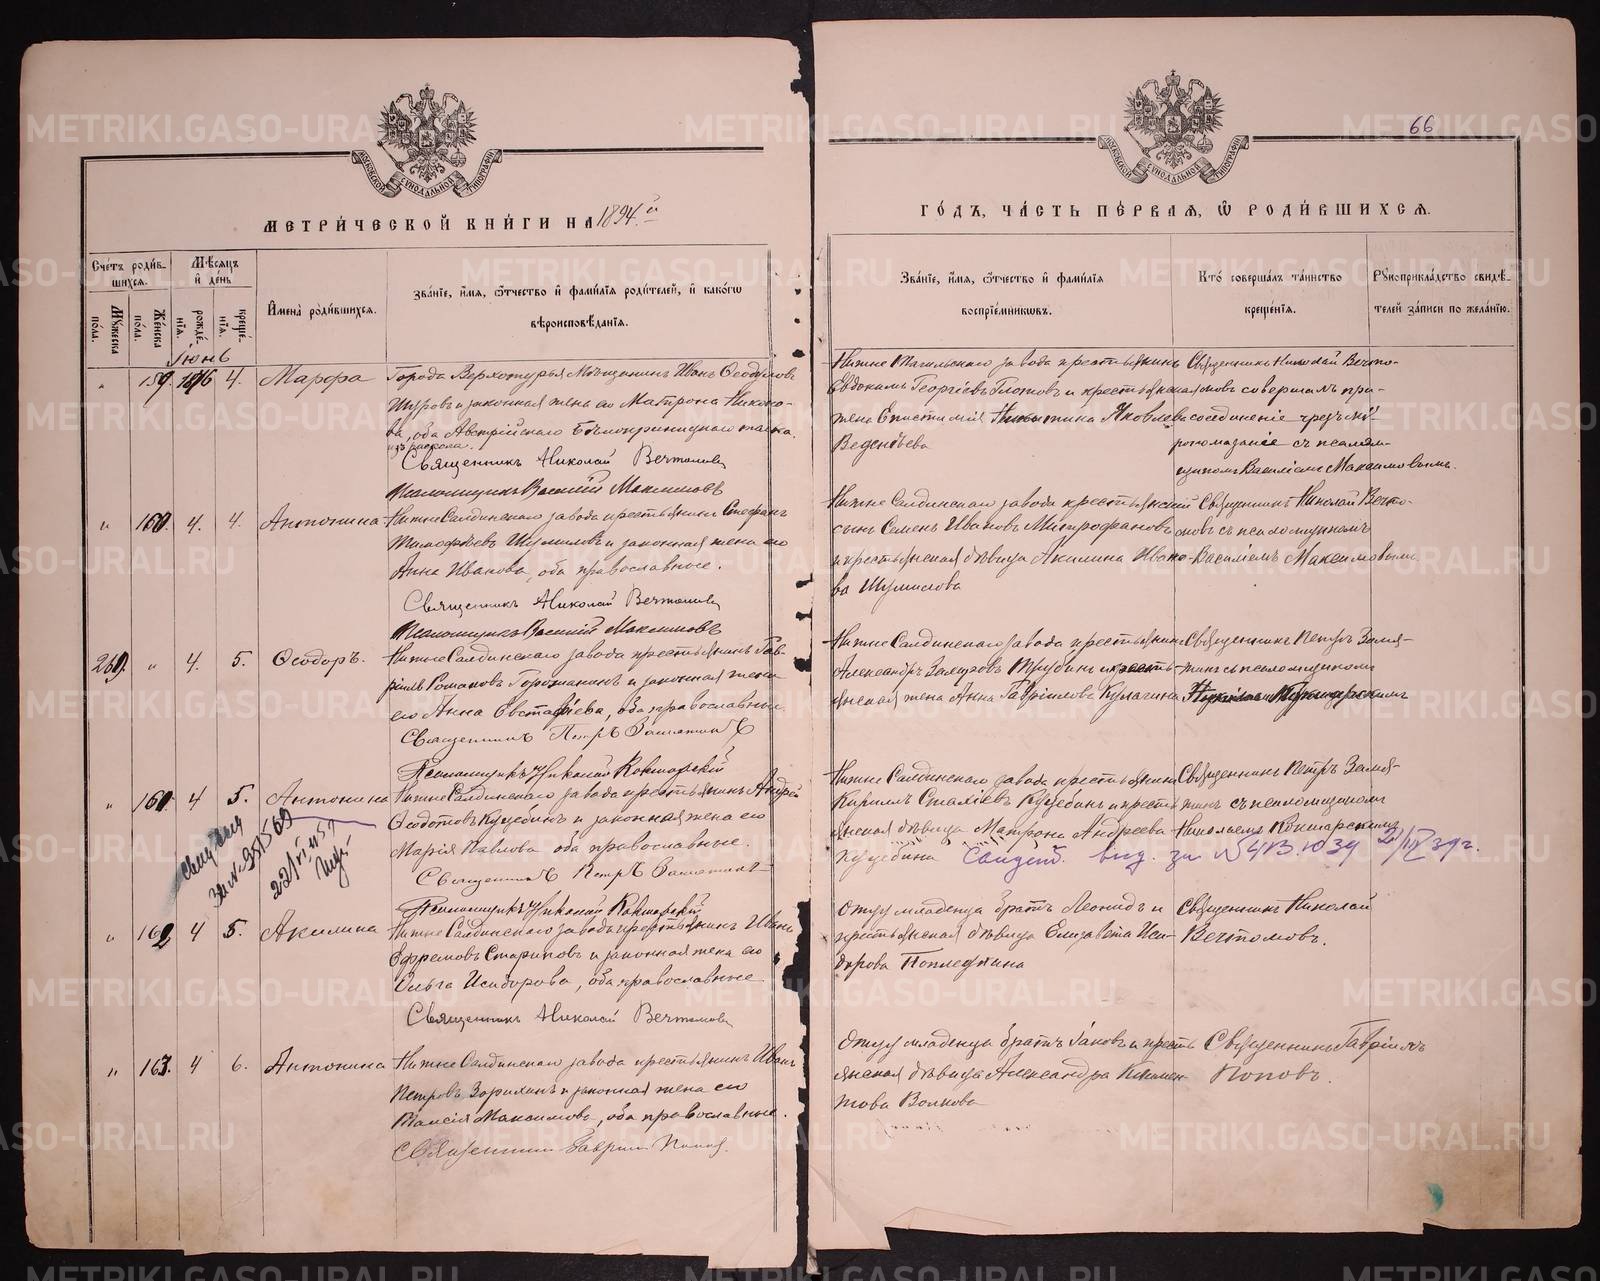 66
МОСКОВСКОЙ СѴНОДАЛЬНОЙ ТИПОГРАФІИ
МОСКОВСКОЙ СѴНОДАЛЬНОЙ ТИПОГРАФІИ
МЕТРИ́ЧЕСКОЙ КНИ́ГИ НА 1894.й
ГО́ДЪ, ЧА́СТЬ ПЕ́РВАЯ, Ѿ РОДИ́ВШИХСЯ.
Сче́тъ роди́в-
шихся.
Мѣ́сяцъ
и́ день
Му́жеска
по́ла.
Же́нска
по́ла.
рожде́-
нія.
креще́-
нія.
И҆мена̀ роди́вшихся.
Зва́ніе, и҆́мя, ѻ҆́тчество и҆ фами́лія роди́телей, и҆ како́гѡ
вѣроисповѣ́данія.
Зва́ніе, и҆́мя, ѻ҆́тчество и҆ фами́лія
воспріе́мникѡвъ.
Кто̀ соверша́лъ та́инство
креще́нія.
Рꙋкоприкла́дство свидѣ́-
телей за́писи по жела́нію.
Іюнь
" 159. 4. Марѳа
Города Верхотурья Мѣщанинъ Иванъ Ѳеодоровъ
и законная жена его Матрона Никоно-
ва, оба Австрійскаго Бѣлокриницкаго толка.
изъ раскола.
Священникъ Николай Вечтомовъ
Псаломщикъ Василій Максимовъ
Нижне Тагильскаго завода крестьянинъ
Евдокимъ Георгіевъ и крестьянская
жена Епистимія Яковлева
Веденѣева
Священникъ Николай Вечто-
мовъ совершалъ при-
соединеніе чрезъ мѵ-
ропомазаніе съ псалом-
щикомъ Василіемъ Максимовымъ.
" 160. 4. 4. Антонина
Нижне Салдинскаго завода крестьянинъ Стефанъ
Тимофѣевъ Шумиловъ и законная жена его
Анна Иванова, оба православные.
Священникъ Николай Вечтомовъ
Псаломщикъ Василій Максимовъ
Нижне Салдинскаго завода крестьянскій
сынъ Семенъ Ивановъ Митрофановъ
и крестьянская дѣвица Акилина Ивано-
ва Шумилова
Священникъ Николай Вечто-
мовъ съ псаломщикомъ
Василіемъ Максимовымъ
260. " 4. 5. Ѳеодоръ.
Нижне Салдинскаго завода крестьянинъ Гав-
ріилъ Романовъ Горожанинъ и законная жена
его Анна Евстафіева, оба православные
Священникъ Петръ Замятинъ
Псаломщикъ Николай Кокшарскій
Нижне Салдинскаго завода крестьянинъ
Александръ Трубинъ и кресть-
янская жена Анна Гавріилова Кулагина
Священникъ Петръ Замя-
тинъ съ псаломщикомъ
Николаемъ Кокшарскимъ
" 161. 4 5. Антонина
Нижне Салдинскаго завода крестьянинъ Андрей
Ѳедотовъ и законная жена его
Марія Павлова оба православные.
Священникъ Петръ Замятинъ
Псаломщикъ Николай Кокшарскій
Нижне Салдинскаго завода крестьянинъ
Кириллъ и кресть-
янская дѣвица Матрона Андреева
Свидет. выд. за №
Священникъ Петръ Замя-
тинъ съ псаломщикомъ
Николаемъ Кокшарскимъ
" 162 4 5. Акилина
Нижне Салдинскаго завода крестьянинъ Иванъ
Ефремовъ Стариковъ и законная жена его
Ольга Исидорова, оба православные
Священникъ Николай Вечтомовъ
Отцу младенца братъ Леонидъ и
крестьянская дѣвица Елизавета Иси-
дорова
Священникъ Николай
Вечтомовъ.
" 163. 4 6. Антонина
Нижне Салдинскаго завода крестьянинъ Иванъ
Петровъ и законная жена его
Таисія Максимова, оба православные.
Священникъ Гавріилъ Поповъ.
Отцу младенца братъ Іаковъ и кресть
янская дѣвица Александра
Волкова
Священникъ Гавріилъ
Поповъ.
METRIKI.GASO-URAL.RU